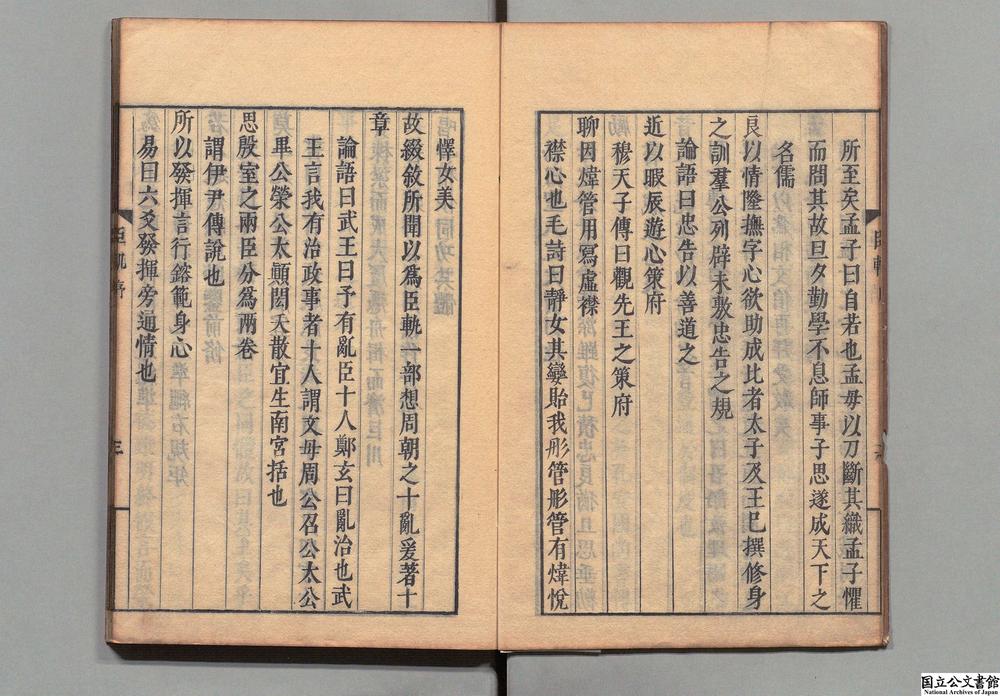 所至矣孟子曰自若也孟母以刀斷其織孟子懼
而問其故旦夕勤學不息師事子思遂成天下之
名儒
良以情隆撫字心欲助成比者太子及王已撰修身
之訓羣公列辟未敷忠告之規
論語曰忠告以善道之
近以暇辰遊心策府
穆天子傳曰觀先王之策府
聊因煒管用寫虛襟
襟心也毛詩曰靜女其孌貽我彤管彤管有煒悅
懌女美
故綴敘所聞以爲臣軌一部想周朝之十亂爰著十
章
論語曰武王曰予有亂臣十人鄭玄曰亂治也武
王言我有治政事者十人謂文母周公召公太公
畢公榮公太顚閎夭散宜生南宮括也
思殷室之兩臣分爲兩卷
謂伊尹傳說也
所以發揮言行鎔範身心
易曰六爻發揮旁通情也
臣軌序
三
国立公文書館
National Archives of Japan